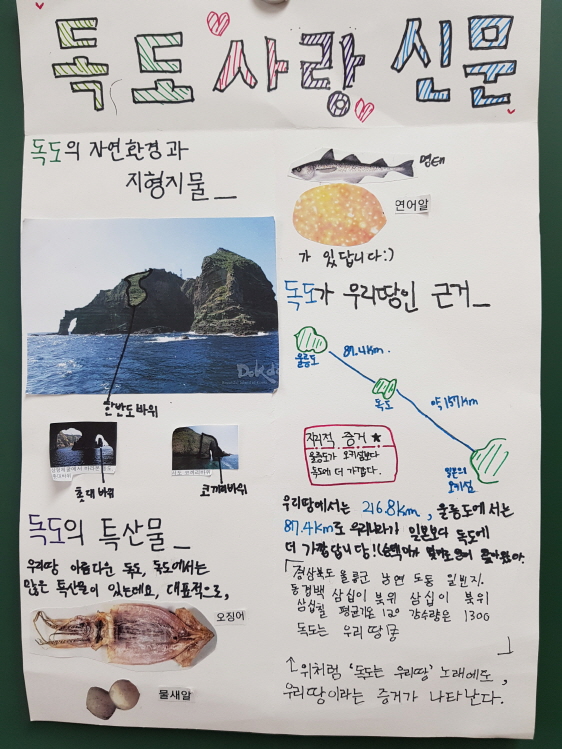 독도 사랑 신문
독도의 자연환경과
지형지물_
Dokdo
한반도바위
촛대바위
코끼리바위
독도의 특산물_
우리땅 아름다운 독도, 독도에서는
많은 특산물이 있는데요, 대표적으로,
오징어
물새알
명태
연어알
가 있답니다:)
독도가 우리땅인 근거_
울릉도
87.4km.
독도
약157km
일본의
오키섬
지리적 증거 ★
울릉도가 오키섬보다
독도에 더 가깝다.
우리땅에서는 216.8km, 울릉도에서는
87.4km로 우리나라가 일본보다 독도에
더 가깝답니다!!
「경상북도 울릉군 남면 도동 일번지.
동경백 삼십이 북위 삼십이 북위
삼십칠 평균기온 12° 강수량은 1300
독도는 우리 땅
」
↑위처럼 '독도는 우리땅' 노래에도,
우리땅이라는 증거가 나타난다.